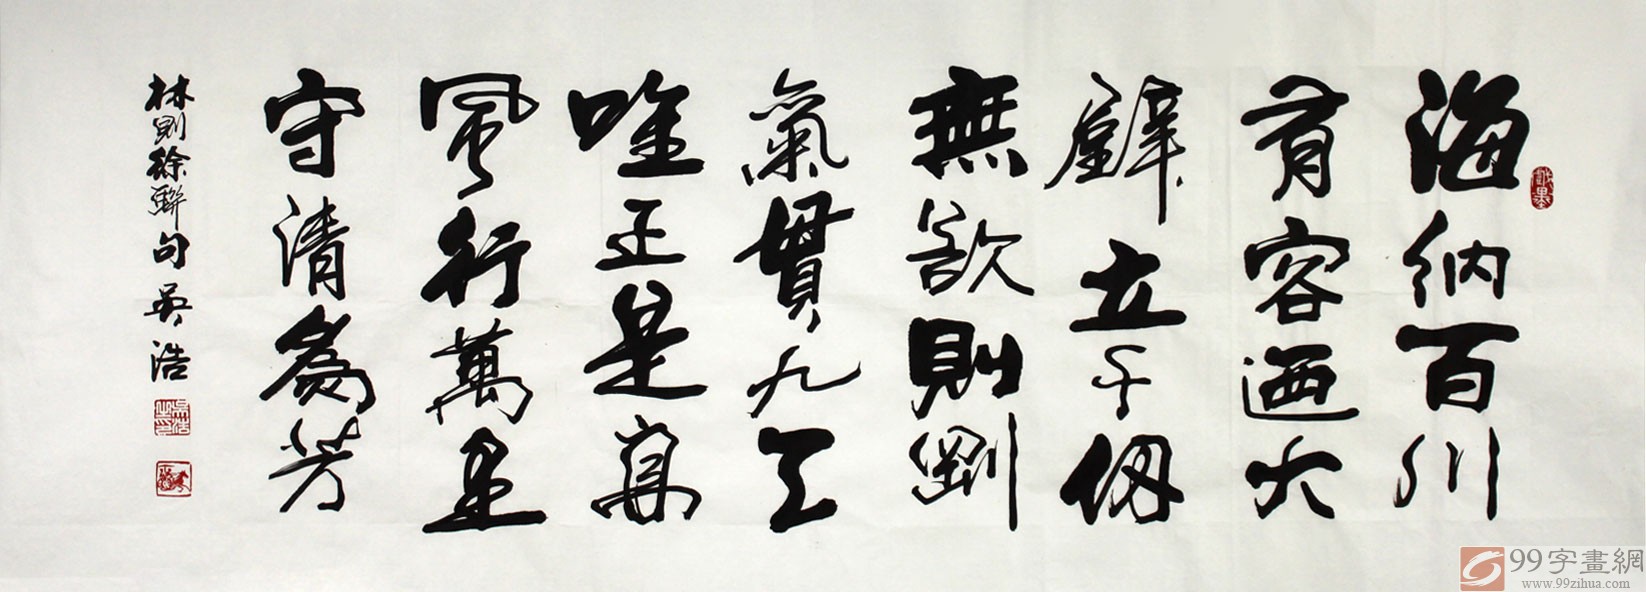 海納百川
有容迺大
壁立千仞
無欲則剛
氣貫九
唯正是
風行萬里
守清為芳
林則徐聯句 吳浩
99字畫網
www.99zihua.com